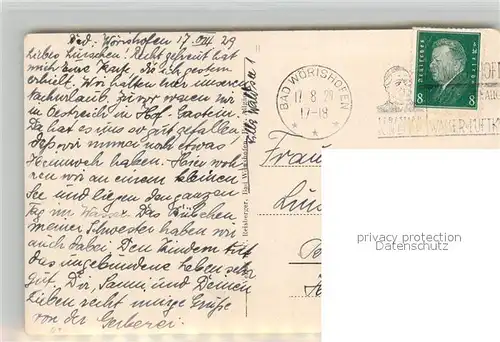 Bad. Wörishofen 17. VIII 29
Liebes Lurschen! Recht gefreut hat
mich Eure Karte, die ich gestern
erhielt. Wir halten hier unseren
Nachurlaub, zuvor waren wir
in Oestreich in Hof-Gastein.
Da hat es uns so gut gefallen,
dass wir immer noch etwas
Heimweh haben. Hier wohnen
wir an einem kleinen
See und liegen den ganzen
Tag im Wasser. Das Bübchen
meiner Schwester haben wir
auch dabei. Den Kindern tut
das ungebundene Leben sehr
gut. Dir, Sanna und Deinen
Lieben recht innige Grüße
von der Gerberei.
Reisberger, Bad Wörishofen
BAD WÖRISHOFEN
17. 8. 29
17-18
DEUTSCHES REICH
8 8
Frau
privacy protection